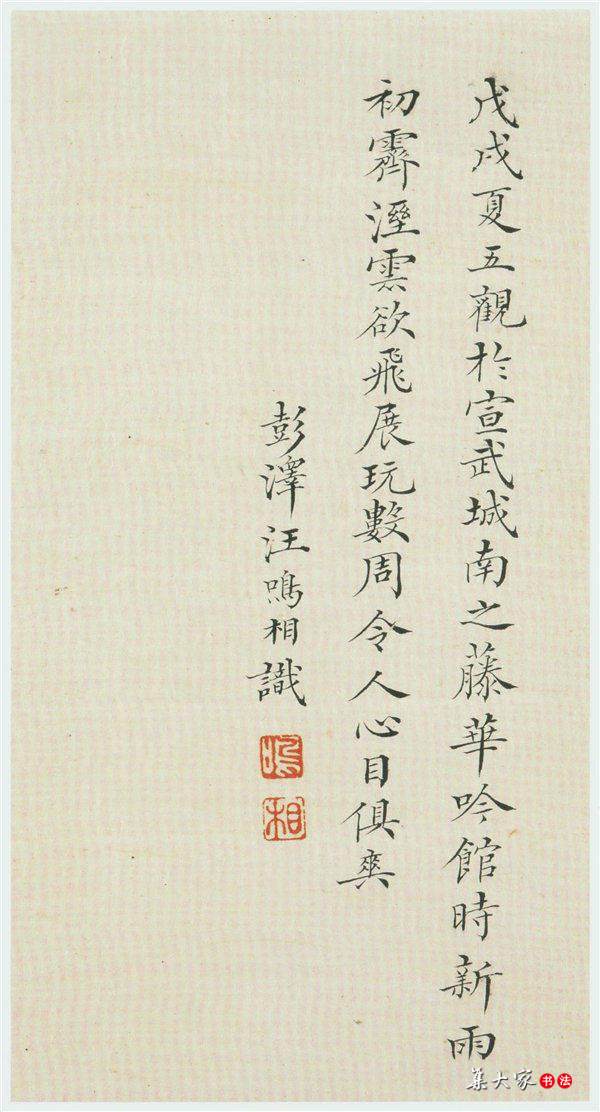 戊戌夏五觀於宣武城南之藤華吟館時新雨
初霽溼雲欲飛展玩數周令人心目俱爽
彭澤汪鳴相識
鳴
相
集大家書法